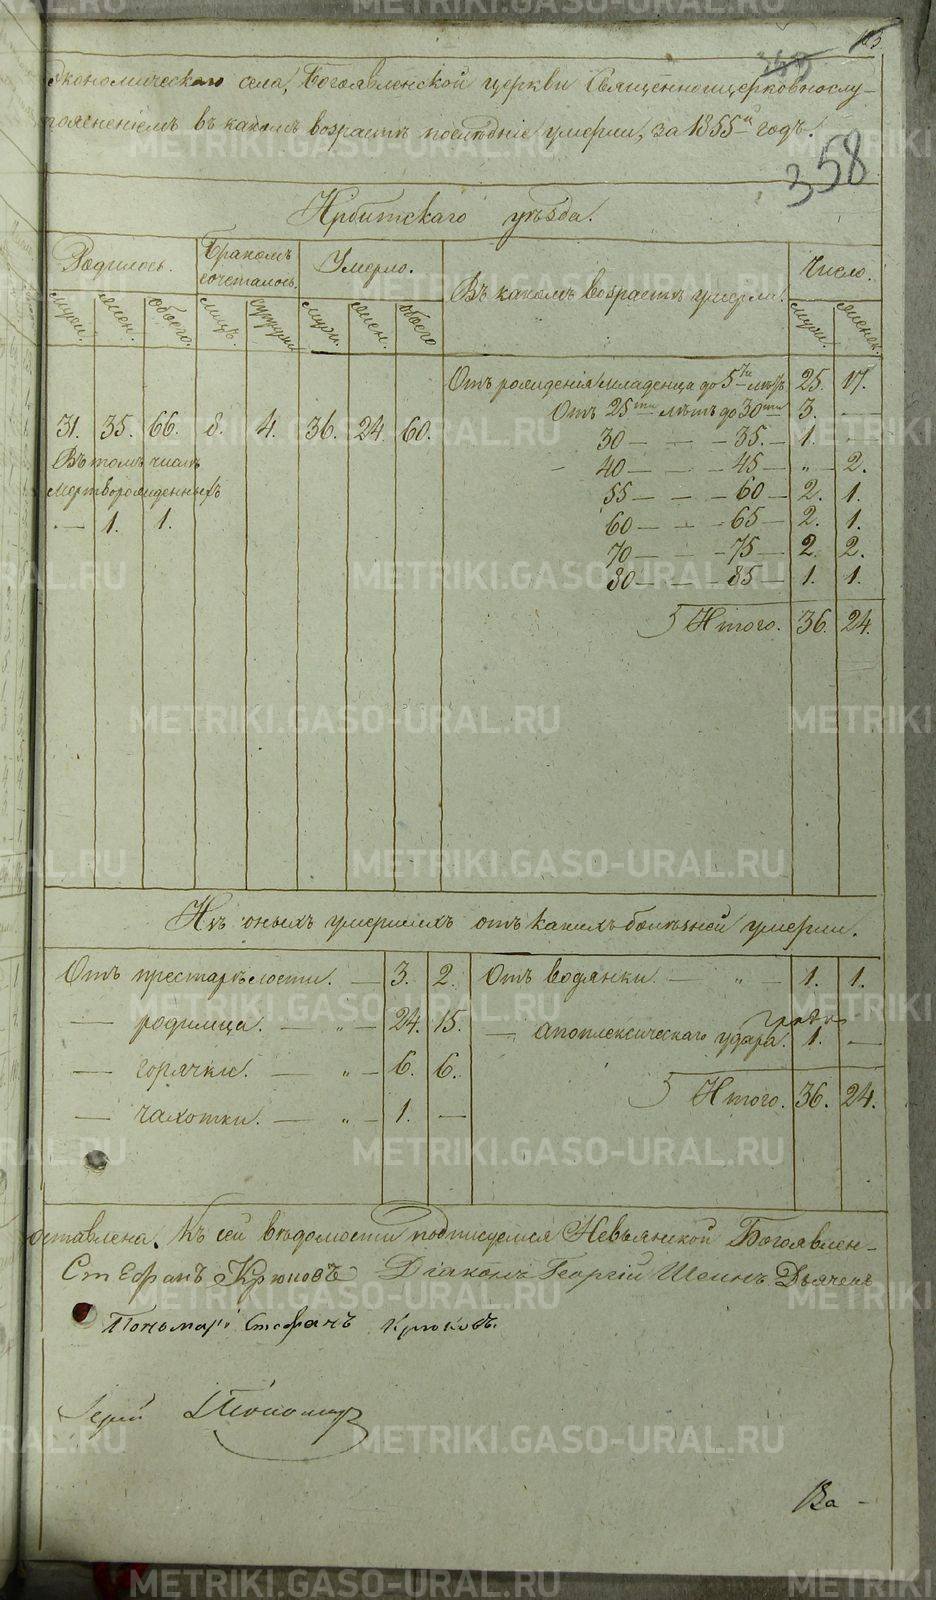 Экономическаго села, Богоявленской церкви Священноицерковнослу-
пояснениемъ въ какомъ возрастѣ послѣдніе умерли, за 1855й годъ.
358
Ирбитскаго уѣзда.
Родилось. Бракомъ сочеталось. Умерло. Въ какомъ возрастѣ умерли. Число.
мужи. жен. обоего. лицъ. супруж. мужи. жен. обоего. мужи. женск.
Отъ рожденія младенца до 5ти лѣтъ 25. 17.
Отъ 25ти лѣтъ до 30ти 3. —
31. 35. 66. 8. 4. 36. 24. 60.
30 — — — 35. — 1. —
Въ томъ числѣ
40 — — — 45 — „ — 2.
мертворожденныхъ
55 — — — 60 — 2. 1.
— 1. 1.
60 — — — 65 — 2. 1.
70 — — — 75 — 2. 2.
80 — — — 85 — 1. 1.
Итого. 36. 24.
Изъ оныхъ умершихъ отъ какихъ болѣзней умерли.
Отъ престарѣлости. — 3. 2. Отъ водянки. — „ — 1. 1.
— родимца. — „ — 24. 15. — апоплексическаго удара. 1. —
— горячки. — „ — 6. 6.
Итого. 36. 24.
— чахотки. — „ — 1. —
оставлена. Къ сей вѣдомости подписуемся Невьянской Богоявлен-
Стефанъ Крюковъ Діаконъ Георгій Шеинъ Дьячекъ
Пономарь Стефанъ Крюковъ.
Іерей
METRIKI.GASO-URAL.RU